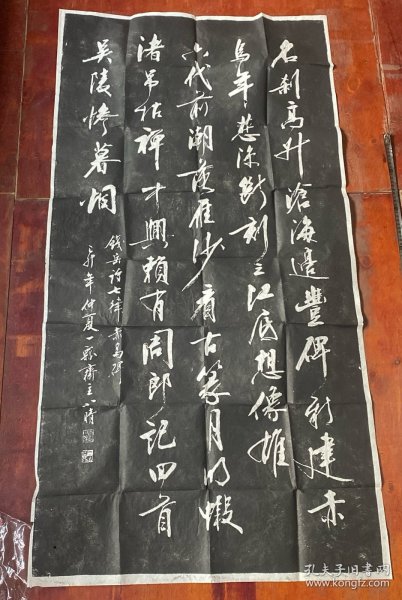 名刹高升滄海邊豐碑新建赤
烏年深斷刻三江底想像雄
六代前潮落雁沙看古篆月明蝦
渚吊枯禪興賴有周郎記回首
吳陵慘暮烟
錢岳詩七律赤烏碑
年仲夏一瓢齋主晴
孔夫子旧书网
www.kongfz.com